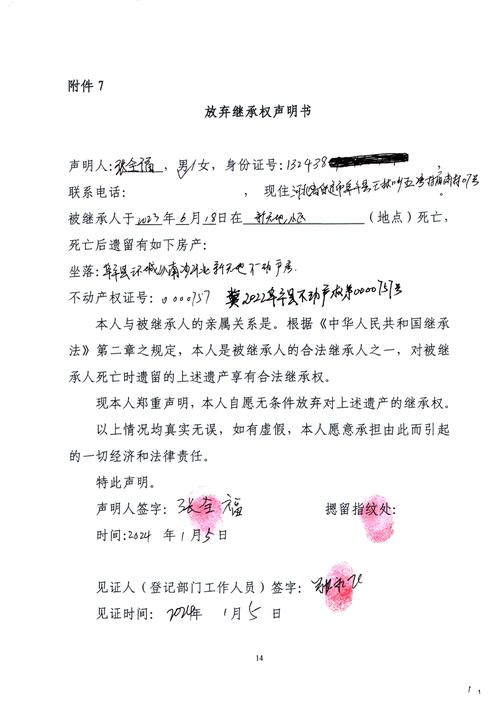 附件 7
放弃继承权声明书
声明人:张全福,男/女,身份证号:132438
联系电话: ,现住河北省保定市阜平县
被继承人于2023年6月18日在 (地点)死亡,
死亡后遗留有如下房产:
坐落:阜平县环城公南沙河北新天地不动产房
不动产权证号:0000757 冀2022阜平县不动产权第0000757号
本人与被继承人的亲属关系是。根据《中华人民共和国继承
法》第二章之规定,本人是被继承人的合法继承人之一,对被继
承人死亡时遗留的上述遗产享有合法继承权。
现本人郑重声明,本人自愿无条件放弃对上述遗产的继承权。
以上情况均真实无误,如有虚假,本人愿意承担由此而引起
的一切经济和法律责任。
特此声明。
声明人签字:张全福 摁留指纹处:
时间:2024 年1月5日
见证人(登记部门工作人员)签字:
见证时间:2024年 1月5日
14